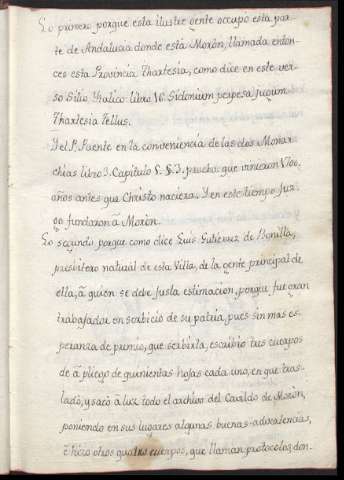 Lo primero porque esta ilustre gente occupo esta par-
te de Andalucia donde esta Moròn, llamada enton-
ces esta Provincia Thartesia, como dice en este ver-
so Silio Ytalico libro 16. Sidonium perpesa jugum
Thartesia Tellus.
Y el P. Puente en la conveniencia de las dos Monar-
chias libro 3. Capitulo 8. §.3. prueba que vinieron 1700.
años antes que Christo naciera. Y en este tiempo juz-
go fundaron à Moròn.
Lo segundo, porque como dice Luis Gutierrez de Bonilla,
presbitero natural de esta Villa, de la gente principal de
ella, à quien se debe justa estimacion, porque fue gran
trabajador en servicio de su patria, pues sin mas es-
peranza de premio, que servirla, escribio tres cuerpos
de à pliego de quinientas hojas cada uno, en que tras-
ladò, y sacò à luz todo el archivo del Cavildo de Moròn,
poniendo en sus lugares algunas buenas advertencias,
è hizo otros quatro cuerpos, que llaman protocolos don-